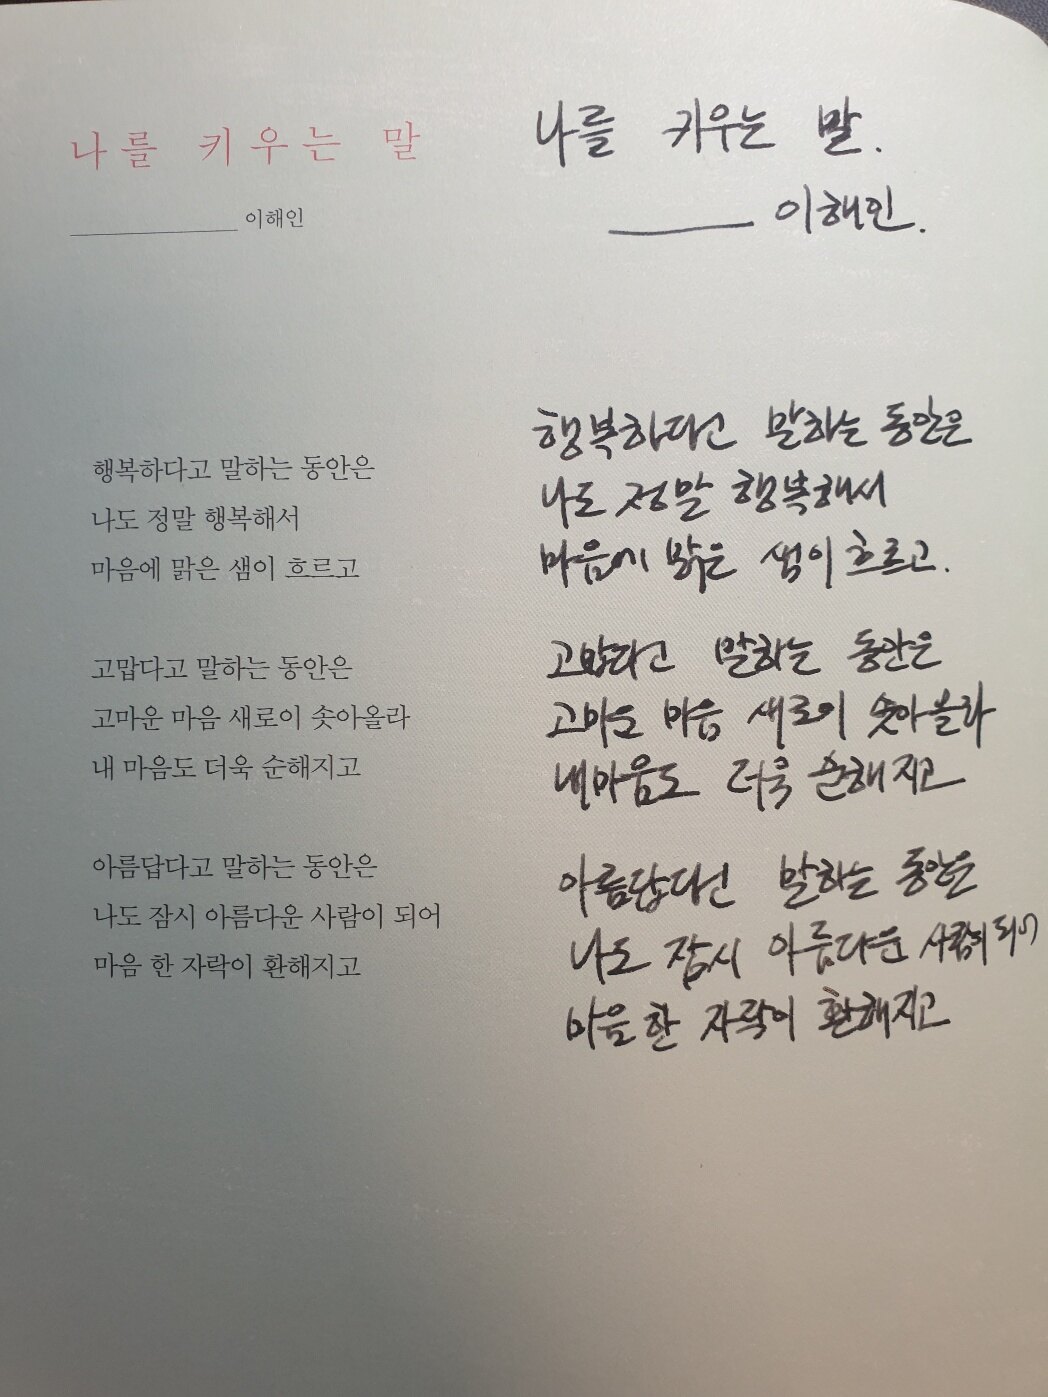 나를 키우는 말
이해인
행복하다고 말하는 동안은
나도 정말 행복해서
마음에 맑은 샘이 흐르고
고맙다고 말하는 동안은
고마운 마음 새로이 솟아올라
내 마음도 더욱 순해지고
아름답다고 말하는 동안은
나도 잠시 아름다운 사람이 되어
마음 한 자락이 환해지고
나를 키우는 말.
이해인.
행복하다고 말하는 동안은
나도 정말 행복해서
마음에 맑은 샘이 흐르고.
고맙다고 말하는 동안은
고마운 마음 새로이 솟아올라
내마음도 더욱 순해지고
아름답다고 말하는 동안은
나도 잠시 아름다운 사람이 되어
마음 한 자락이 환해지고